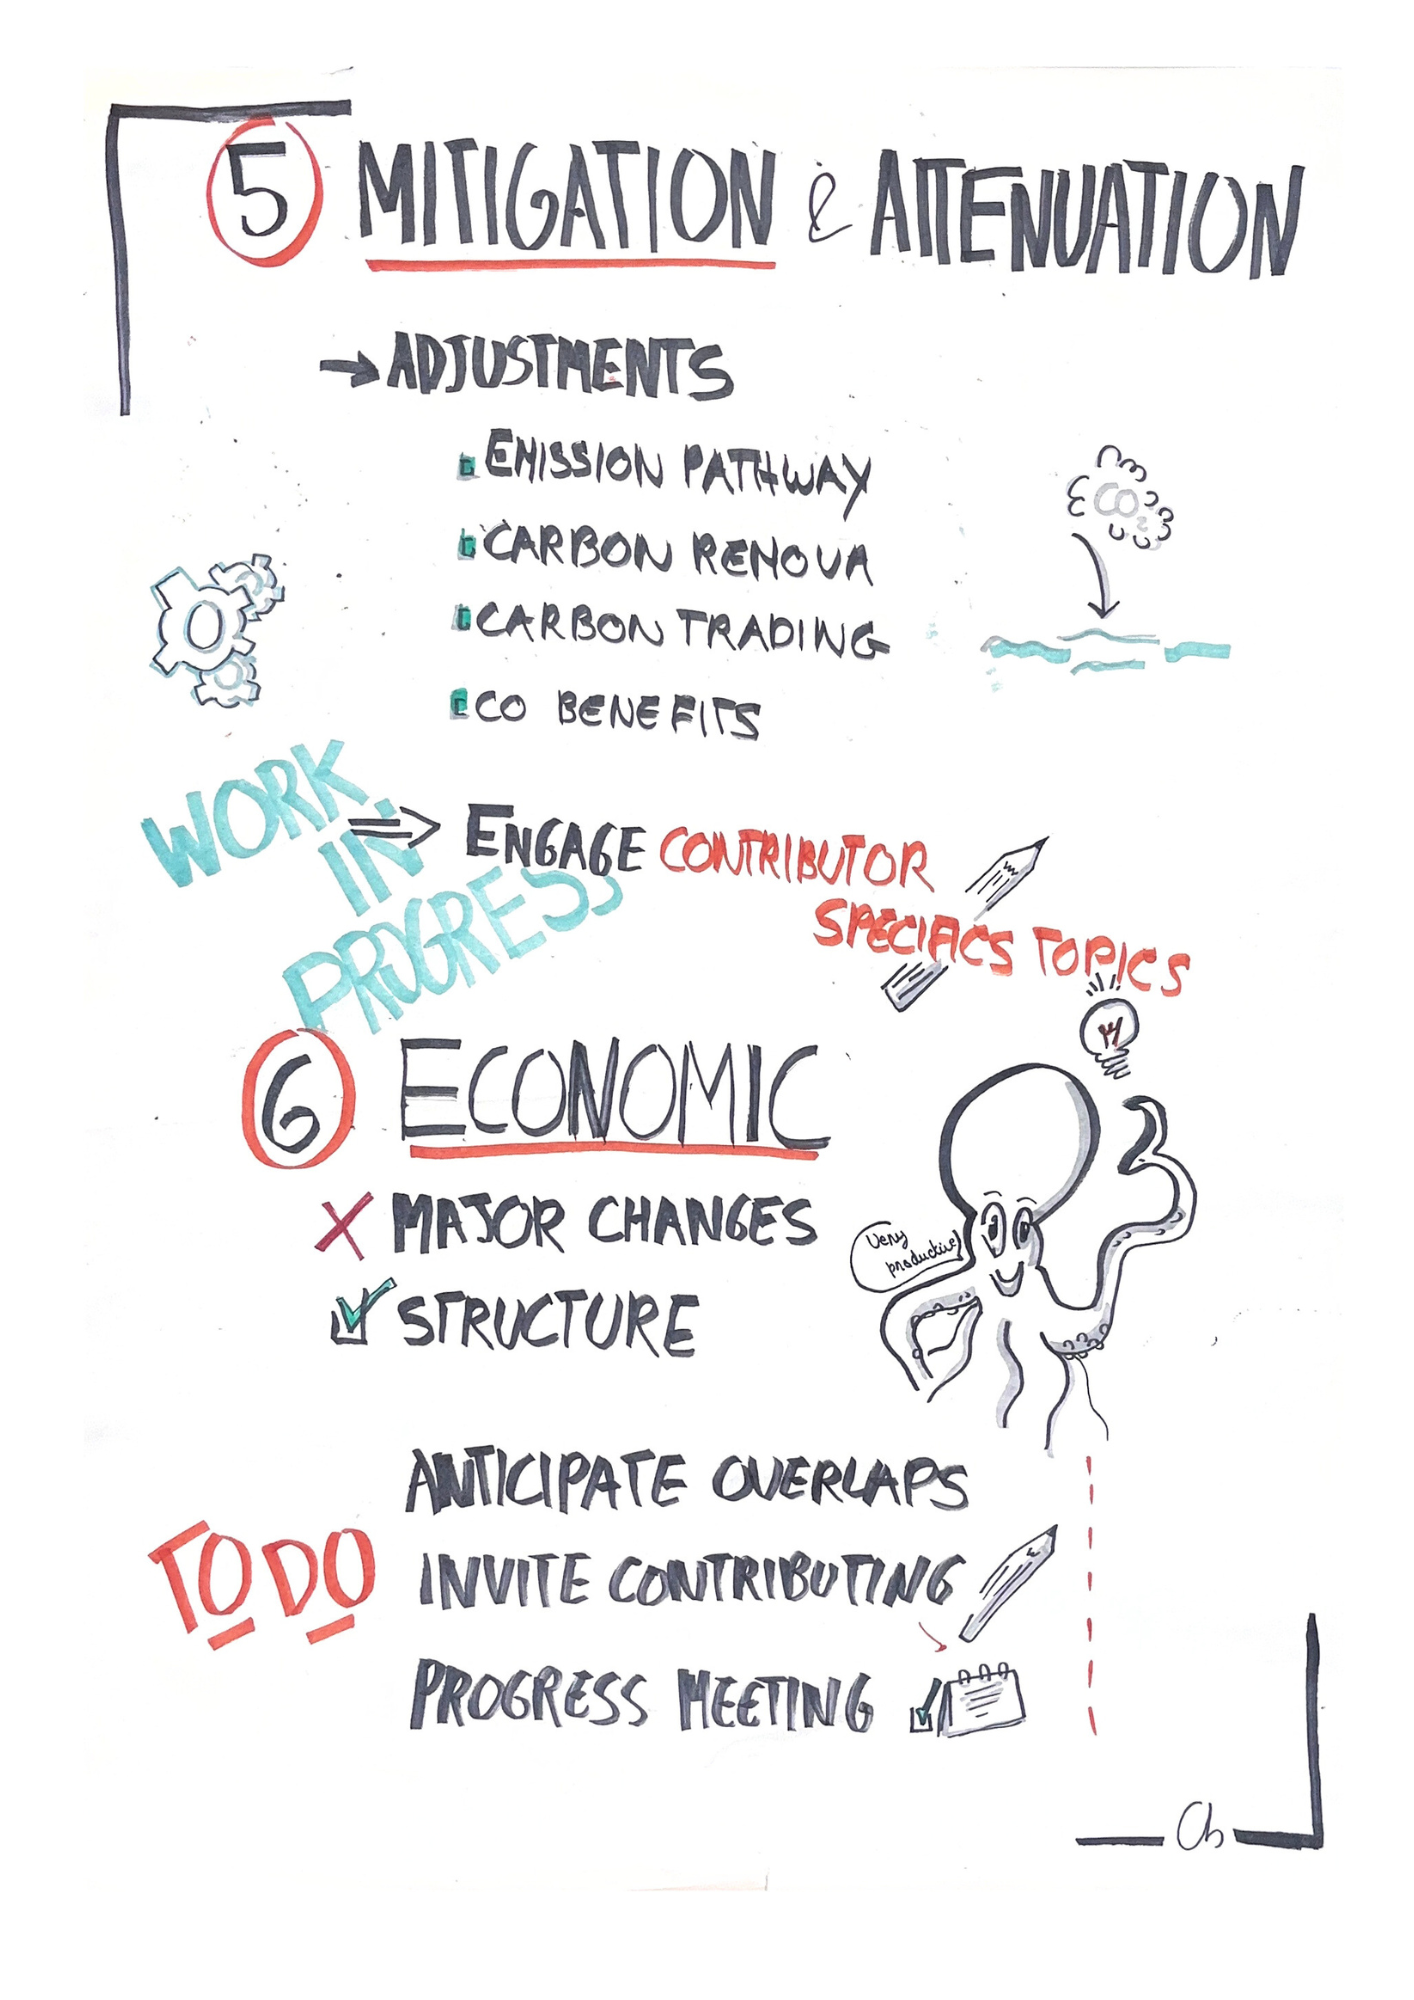 5 MITIGATION & ATTENUATION
→ ADJUSTMENTS
EMISSION PATHWAY
CARBON REMOVA
CARBON TRADING
CO BENEFITS
CO2
WORK
IN
PROGRESS
⇒ ENGAGE CONTRIBUTOR
SPECIFICS TOPICS
6 ECONOMIC
X MAJOR CHANGES
☑ STRUCTURE
Very
productive
TO DO
ANTICIPATE OVERLAPS
INVITE CONTRIBUTING
PROGRESS MEETING